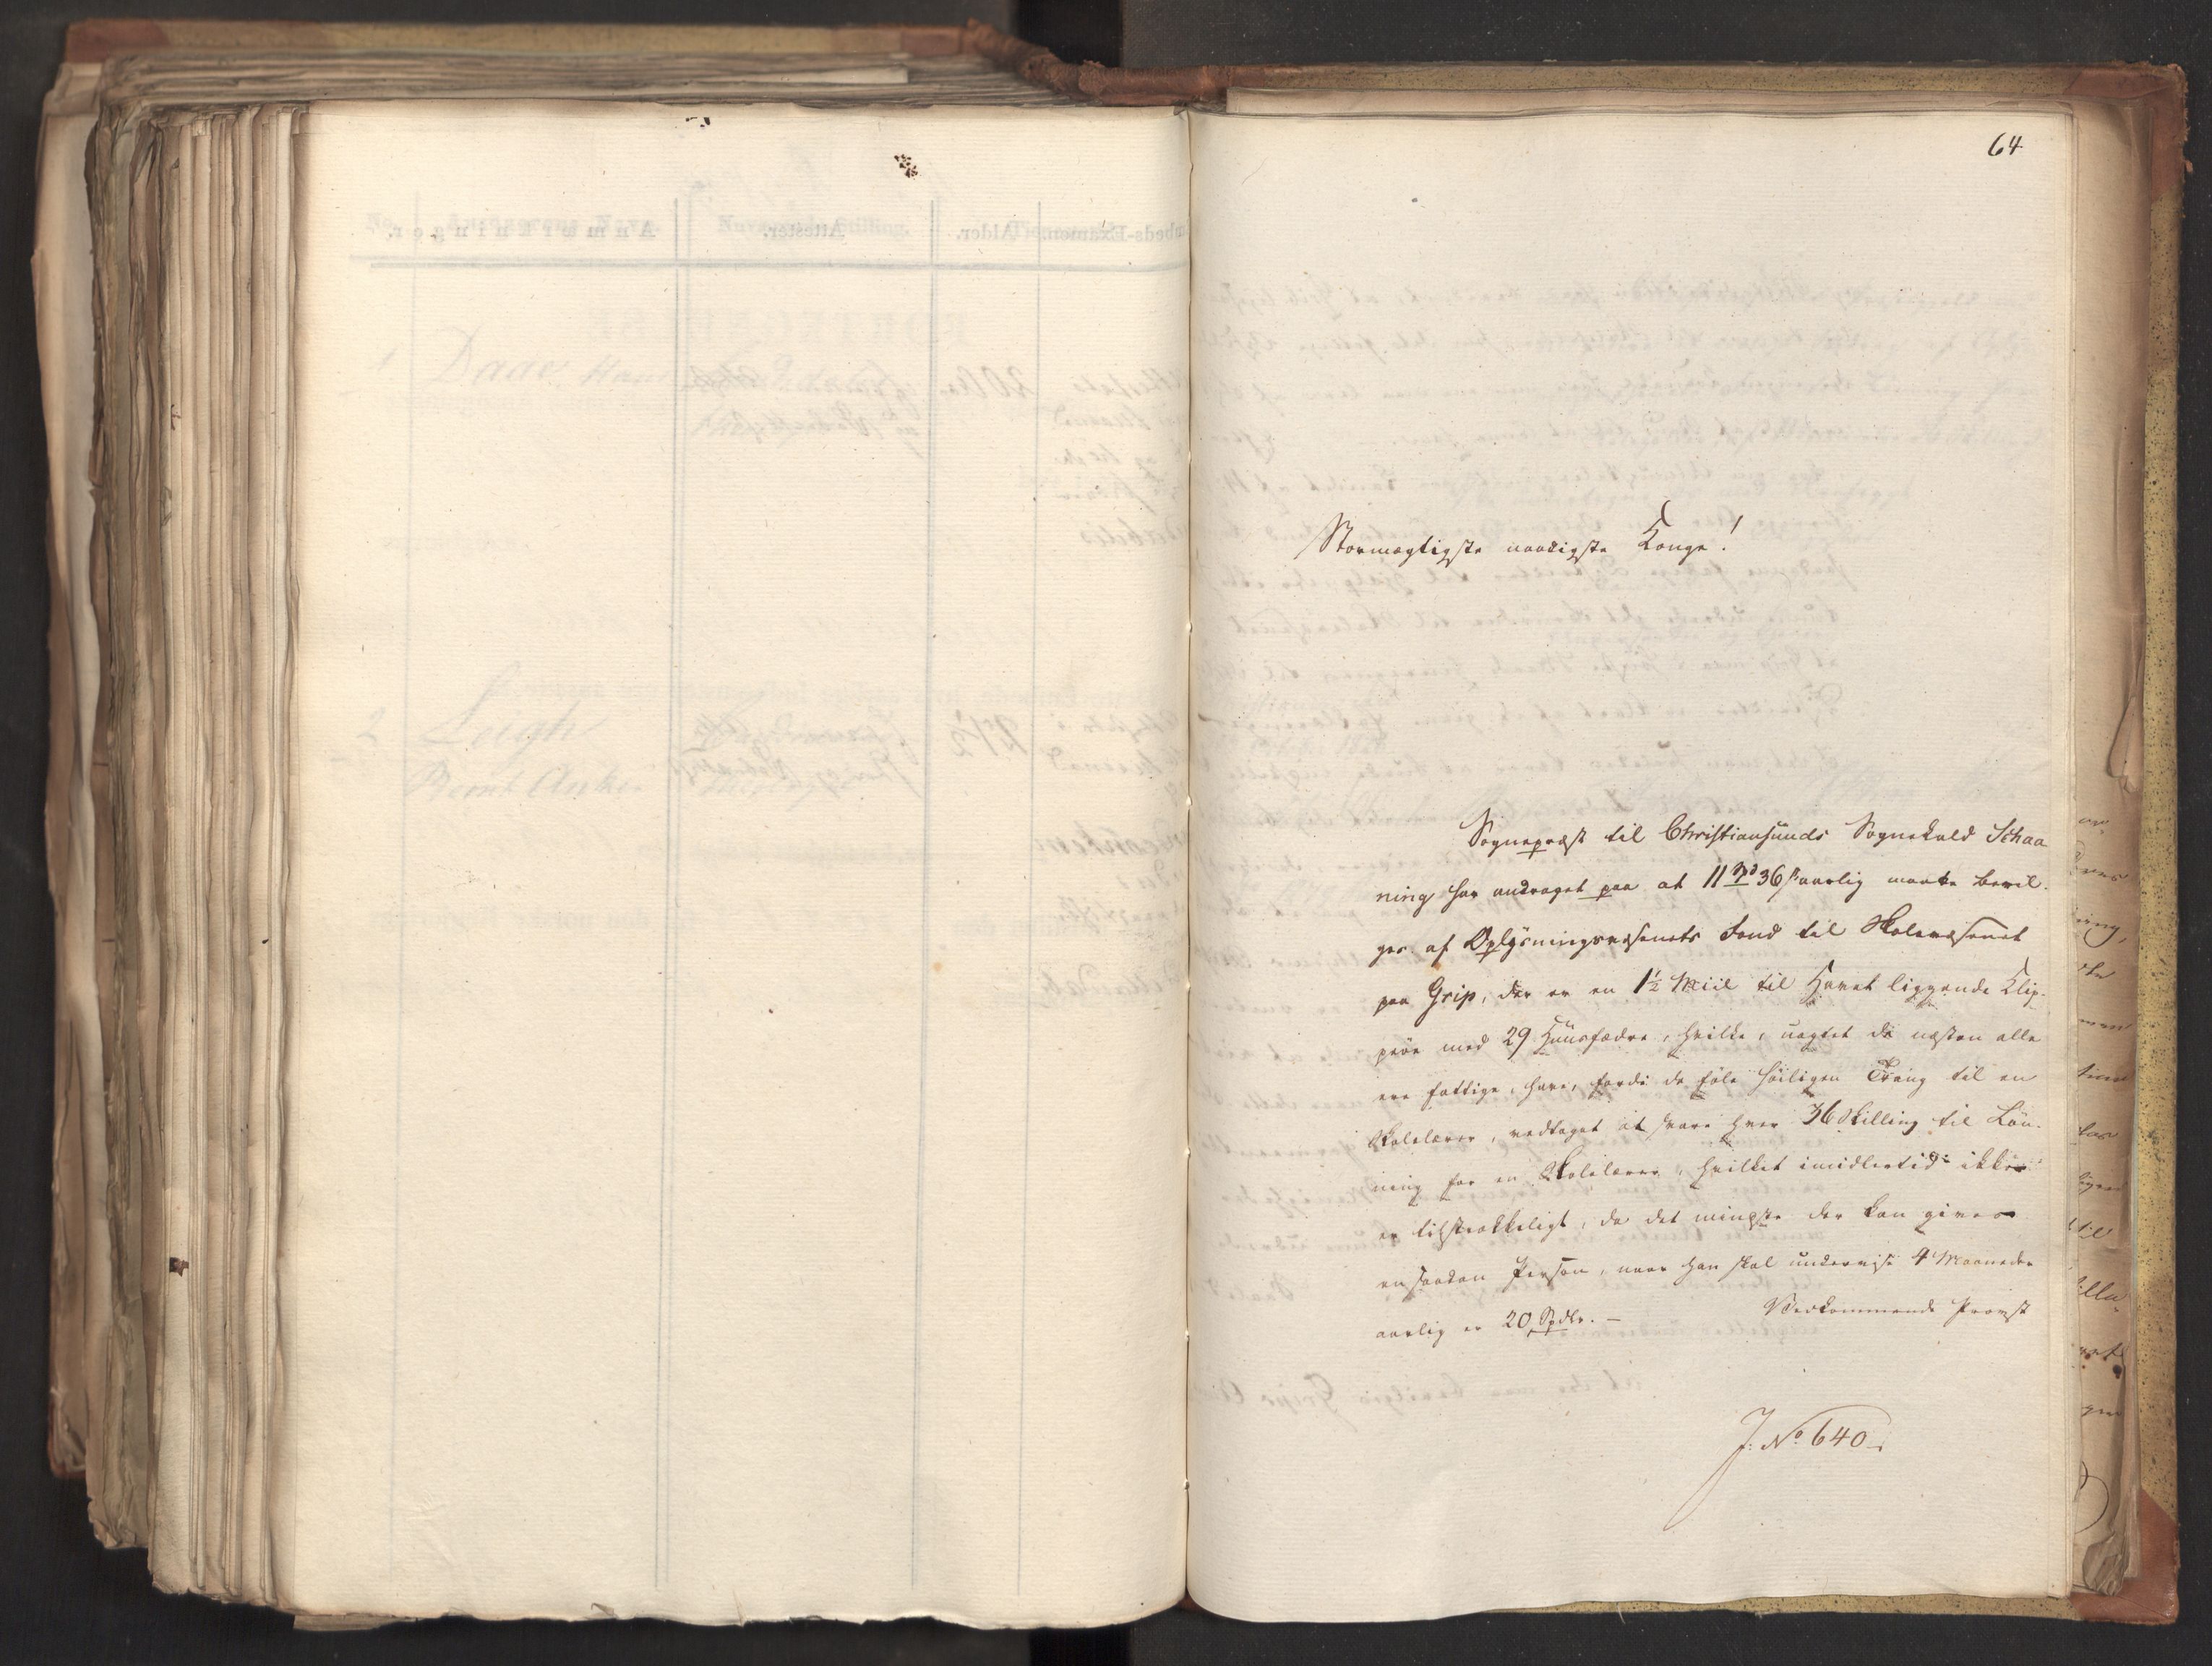 64
Stormægtigste naadigste Konge!
Sognepræst til Christiansunds Sognekald Schaa
ning har andraget paa at 11 Spd 36 s aarlig maatte bevil-
ges af Oplysningsvæsenets Fond til Skolevæsenet
paa Grip, der er en 1½ Miil til Havet liggende Klip-
peöe med 29 Huusfædre, hvilke, uagtet de næsten alle
ere fattige, have, fordi de föle höiligen Trang til en
Skolelærer, vedtaget at svare hver 36 Skilling til Lön-
ning for en Skolelærer, hvilket imidlertid ikke
er tilstrækkeligt, da det mingste der kan gives
en saadan Person, naar han skal undervise 4 Maaneder
aarlig er 20 Spdlr. — Vedkommende Provst
J. No 640